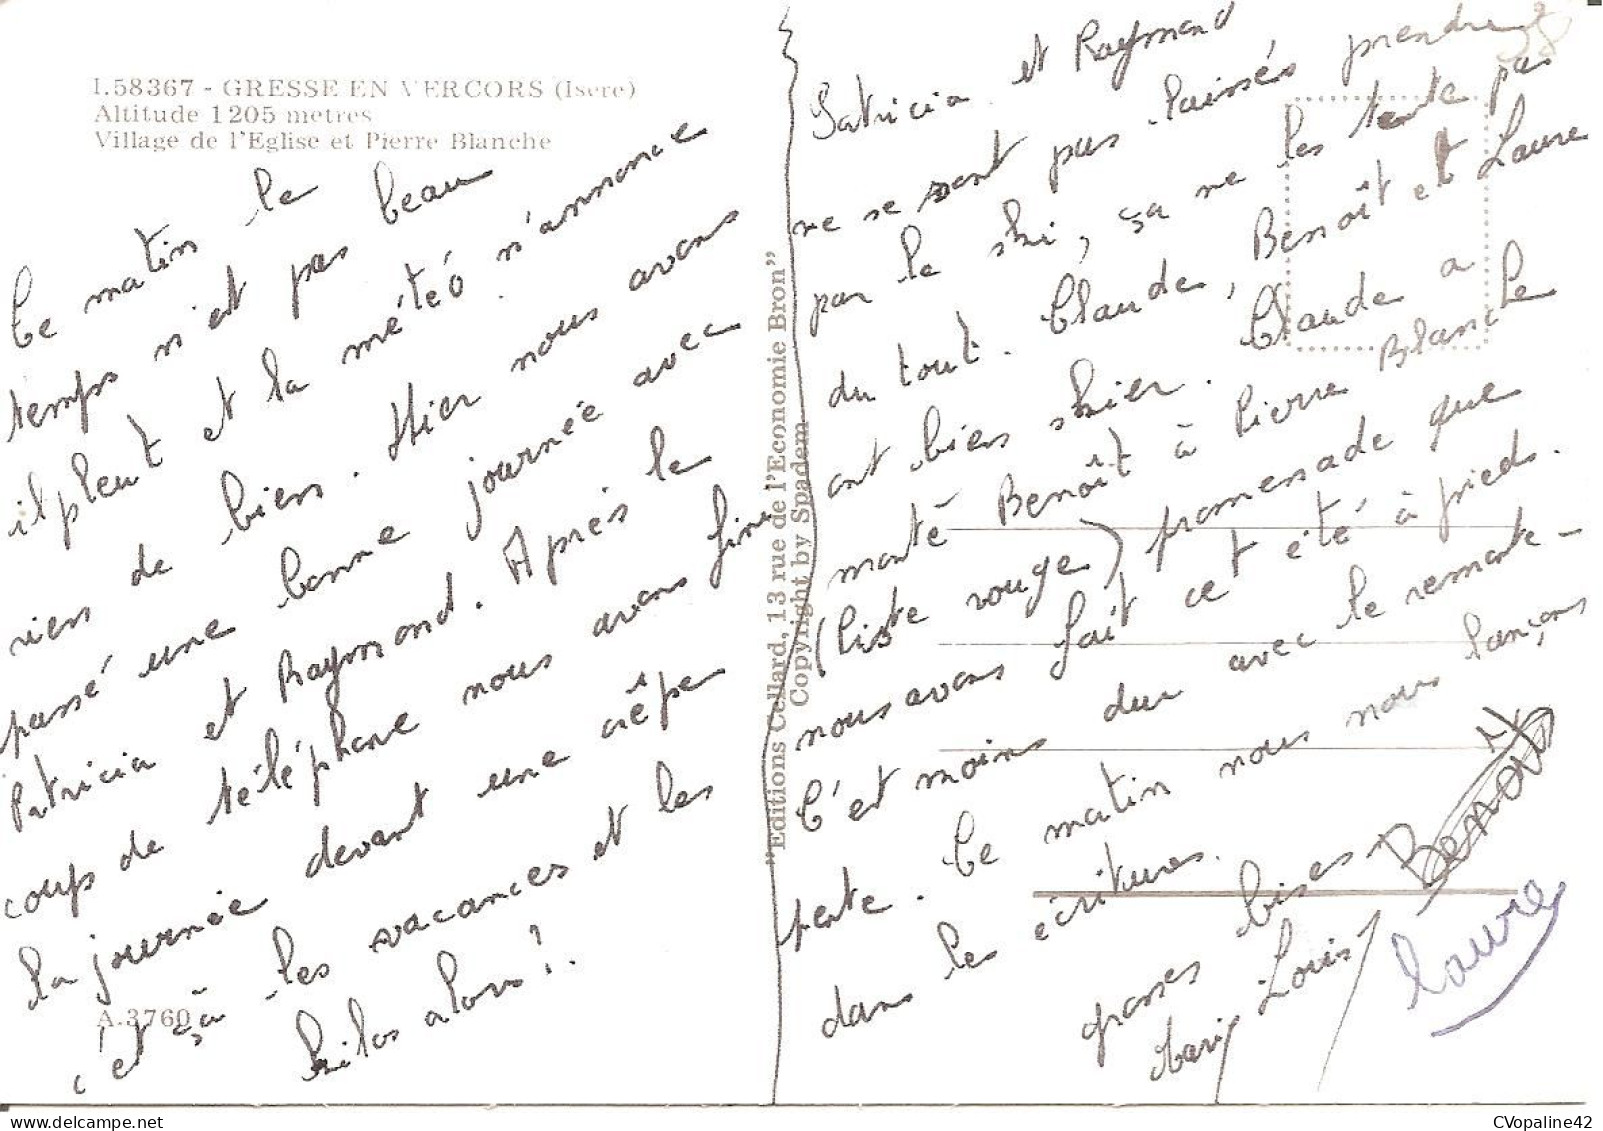 I.58367 - GRESSE EN VERCORS (Isère)
Altitude 1205 mètres
Village de l'Eglise et Pierre Blanche
Ce matin le
temps n'est pas beau
il pleut et la météo n'annonce
rien de bien. Hier nous avons
passé une bonne journée avec
Patricia et Raymond. Après le
coup de téléphone nous avons fini
la journée devant une crêpe
c'est ça les vacances et les
kilos alors !.
A.3760
"Editions Cellard, 13 rue de l'Economie Bron"
Copyright by Spadem
Patricia et Raymond
ne se sont pas laissés prendre
par le ski, ça ne les tente pas
du tout. Claude, Benoît et Laure
ont bien skier. Claude a
monté Benoît à Pierre Blanche
(liste rouge) promenade que
nous avons fait cet été à pieds.
C'est moins dur avec le remonte-
pente. Ce matin nous nous lançons
dans les écritures.
grosses bises
Marie Louise
Benoît
Laure
CVopaline42